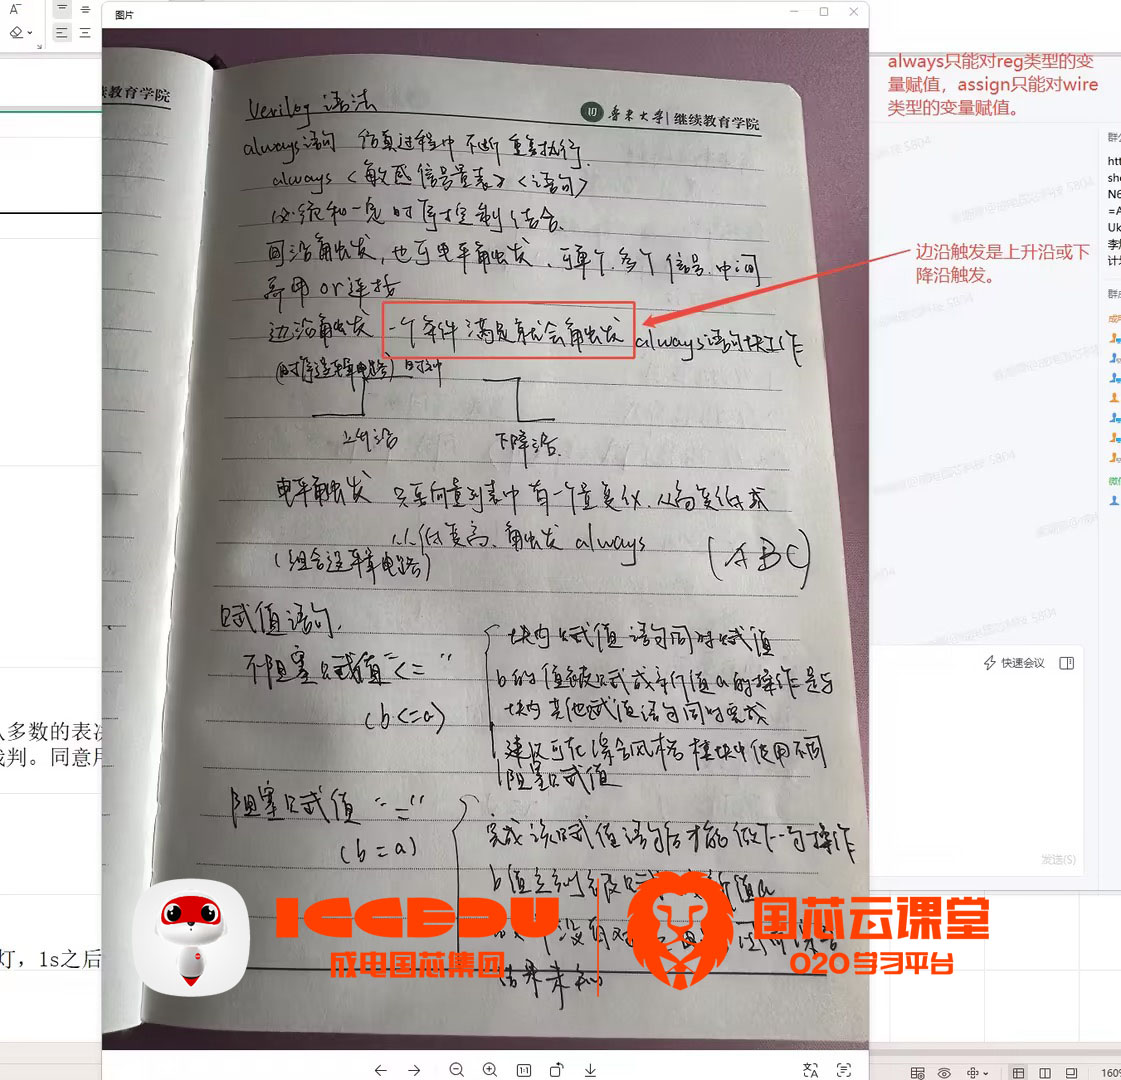 图片
always只能对reg类型的变
量赋值，assign只能对wire
类型的变量赋值。
教育学院
Verilog 语法
鲁东大学|继续教育学院
always语句 仿真过程中不断重复执行.
always <敏感信号量表> <语句>
必须和一定时序控制结合.
可沿触发,也可电平触发、可单个,多个信号.中间
需用or连接
边沿触发 一个条件满足就会触发 always语句块工作
(时序逻辑电路) 时刻
边沿触发是上升沿或下
降沿触发。
上升沿 下降沿.
电平触发 只要向量列表中有一个量变化.从高变低或
从低变高、触发 always
(组合逻辑电路)
(A B C)
赋值语句.
不阻塞赋值“<=”
(b<=a)
块内赋值语句同时赋值
b的值被赋成新值a的操作是与
块内其他赋值语句同时完成
建议可在综合风格模块中使用不
阻塞赋值
阻塞赋值“=”
(b=a)
完成该赋值语句后才能做下一句操作
b值立刻被赋
值a
结果未知
快速会议
发送(S)
多数的表决
判。同意用
灯，1s之后
ICCEDU
成电国芯集团
国芯云课堂
O2O学习平台
1:1
160%